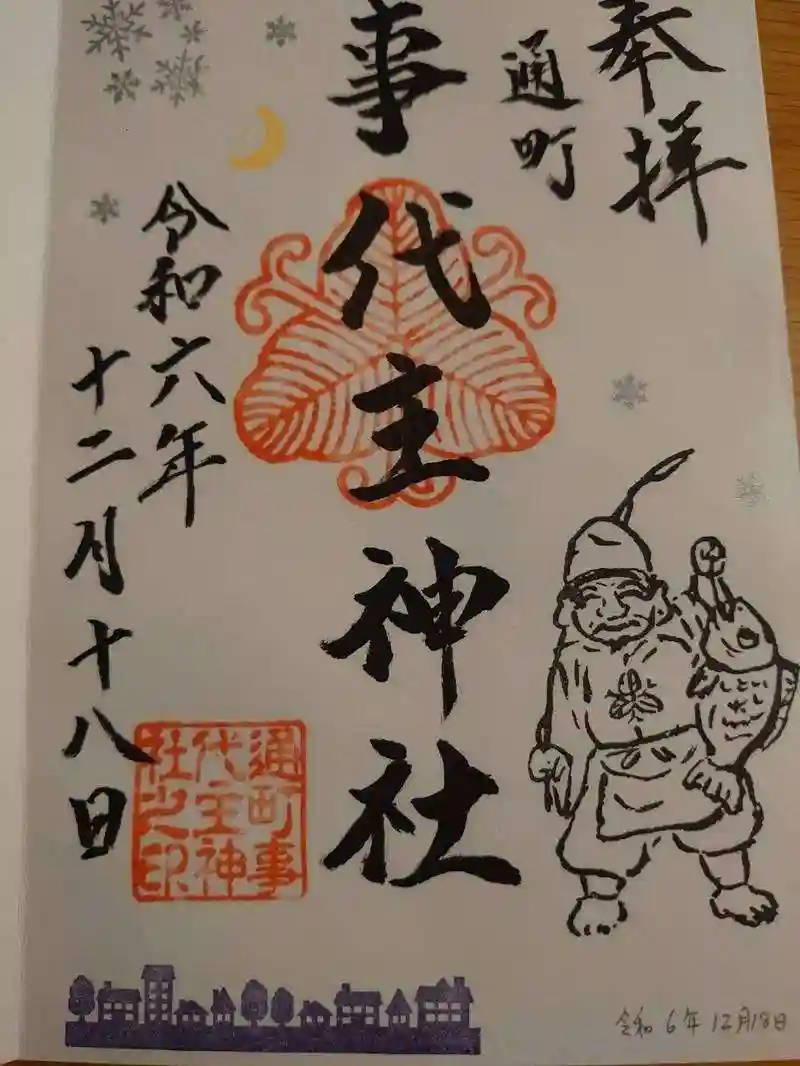 奉拝
通町
事代主神社
令和六年
十二月十八日
通町事
代主神
社之印
令和6年12月18日